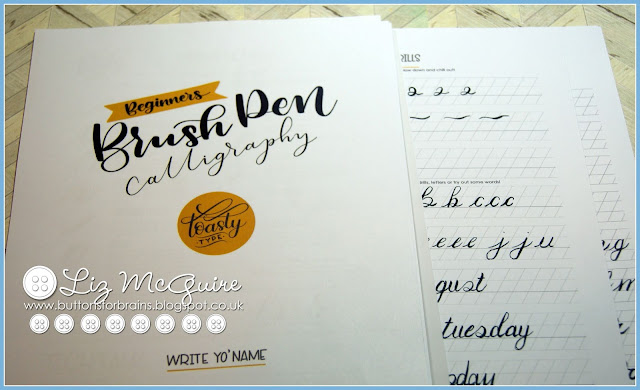 Beginners
Brush Pen
Calligraphy
toasty
TYPE
WRITE YO' NAME
Liz McGuire
www.buttonsforbrains.blogspot.co.uk
a a a
letters or try out some words!
b b c c c
e e e j j u
gust
tuesday
day